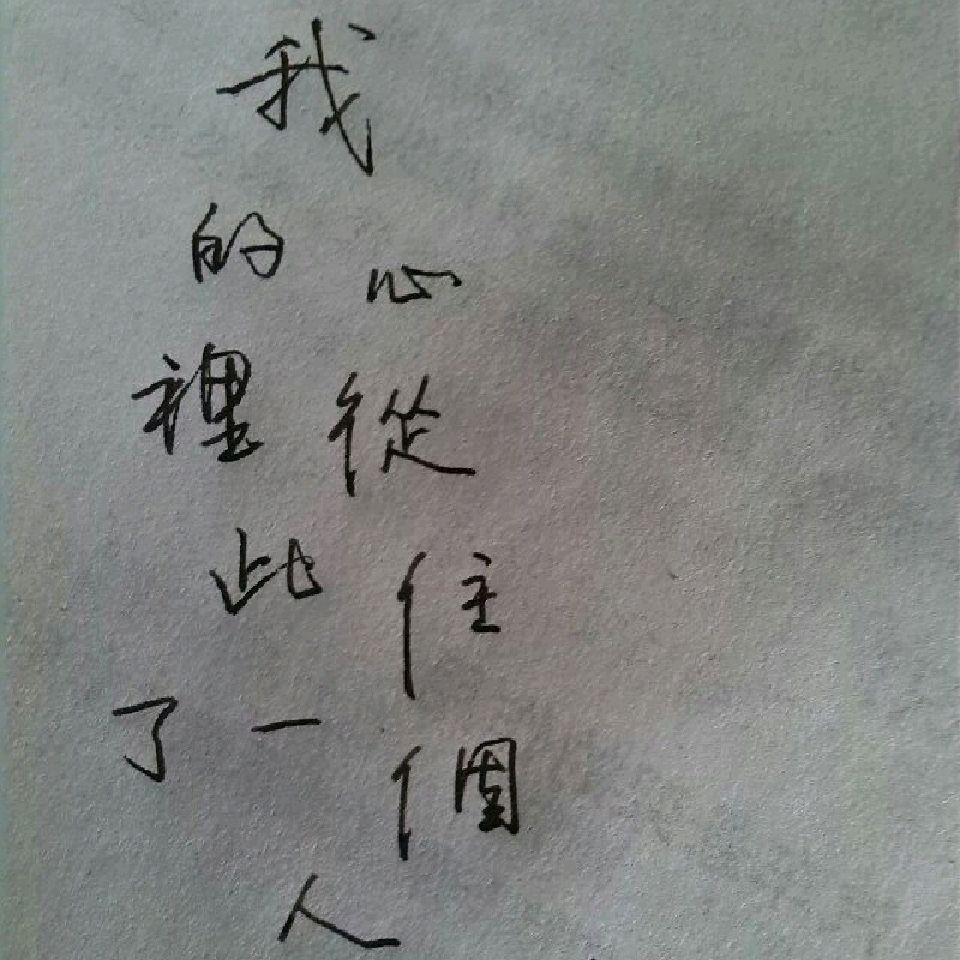 我
的心
裡從
此住
了一個
人